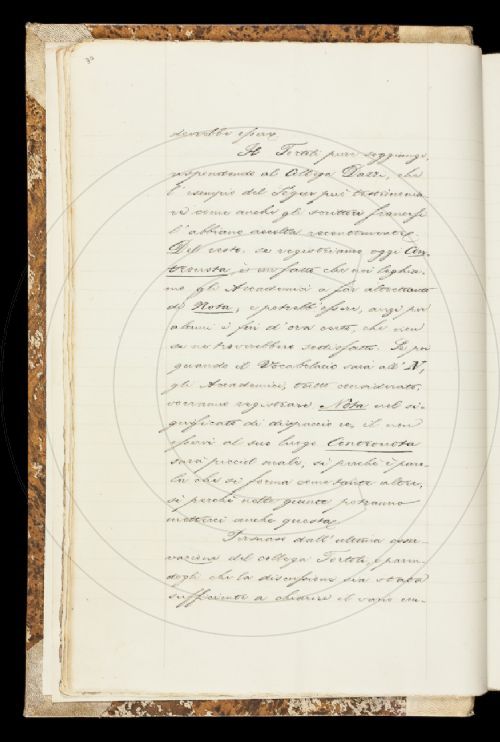 30
dovrebbe essere.
Il Tortoli pure soggiunge,
rispondendo al Collega Dazzi, che
l'esempio del Segur può testimonia-
re come anche gli scrittori francesi
l'abbiano accolta recentemente.
Del resto, se registriamo oggi Con-
tronota, è un fatto che noi leghia-
mo gli Accademici a far altrettanto
di Nota, e potrebb'essere, anzi per
alcuni è fin d'ora certo, che non
se ne troverebbero sodisfatti. Se poi
quando il Vocabolario sarà all'N,
gli Accademici, tutto considerato,
vorranno registrare Nota nel si-
gnificato di dispaccio ec, il non
essere al suo luogo Contronota
sarà piccol male, sì perchè è paro-
la che si forma come tante altre,
sì perchè nelle giunte potranno
metterci anche questa.
dall'ultima osser-
vazione del collega Tortoli, e paren-
dogli che la discussione sia stata
sufficiente a chiarire il vario